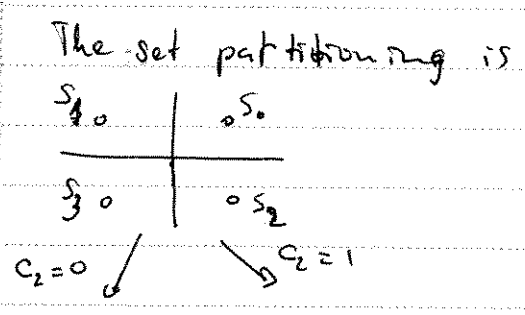 The set partitioning is
S₁ S₀
S₃ S₂
C₂ = 0 C₂ = 1